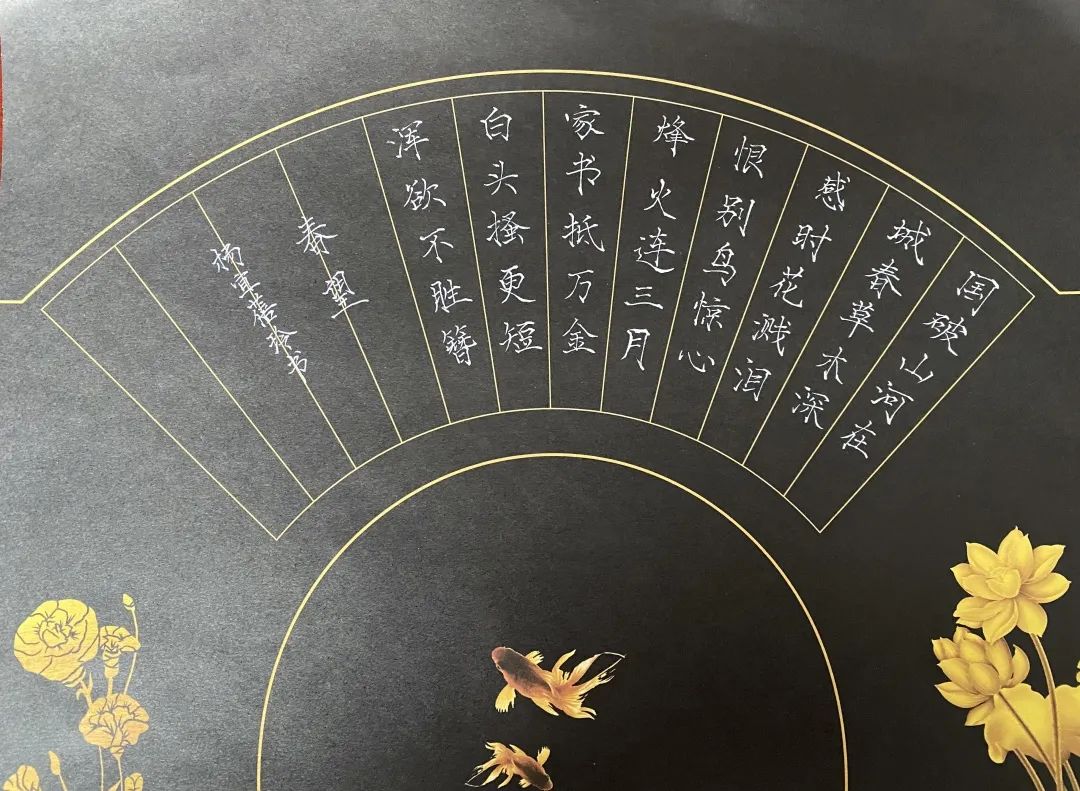 国破山河在
城春草木深
感时花溅泪
恨别鸟惊心
烽火连三月
家书抵万金
白头搔更短
浑欲不胜簪
春望
杨宜蓓玲书